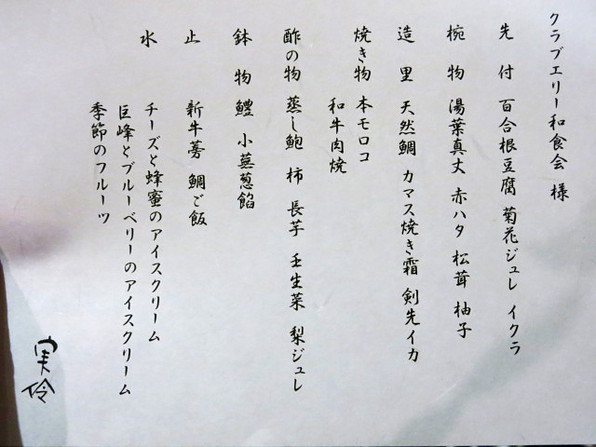 クラブエリー和食会 様
先付 百合根豆腐 菊花ジュレ イクラ
椀物 湯葉真丈 赤ハタ 松茸 柚子
造里 天然鯛 カマス焼き霜 剣先イカ
焼き物 本モロコ
和牛肉焼
酢の物 蒸し鮑 柿 長芋 壬生菜 梨ジュレ
鉢物 鱧 小蕪葱餡
止 新牛蒡 鯛ご飯
水 チーズと蜂蜜のアイスクリーム
巨峰とブルーベリーのアイスクリーム
季節のフルーツ
実伶